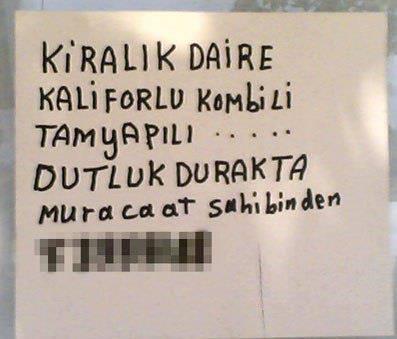 KiRALIK DAiRE
KALiFORLU KOMbiLi
TAMyAPILI .....
DUTLUK DURAKTA
muracaat sahibinden